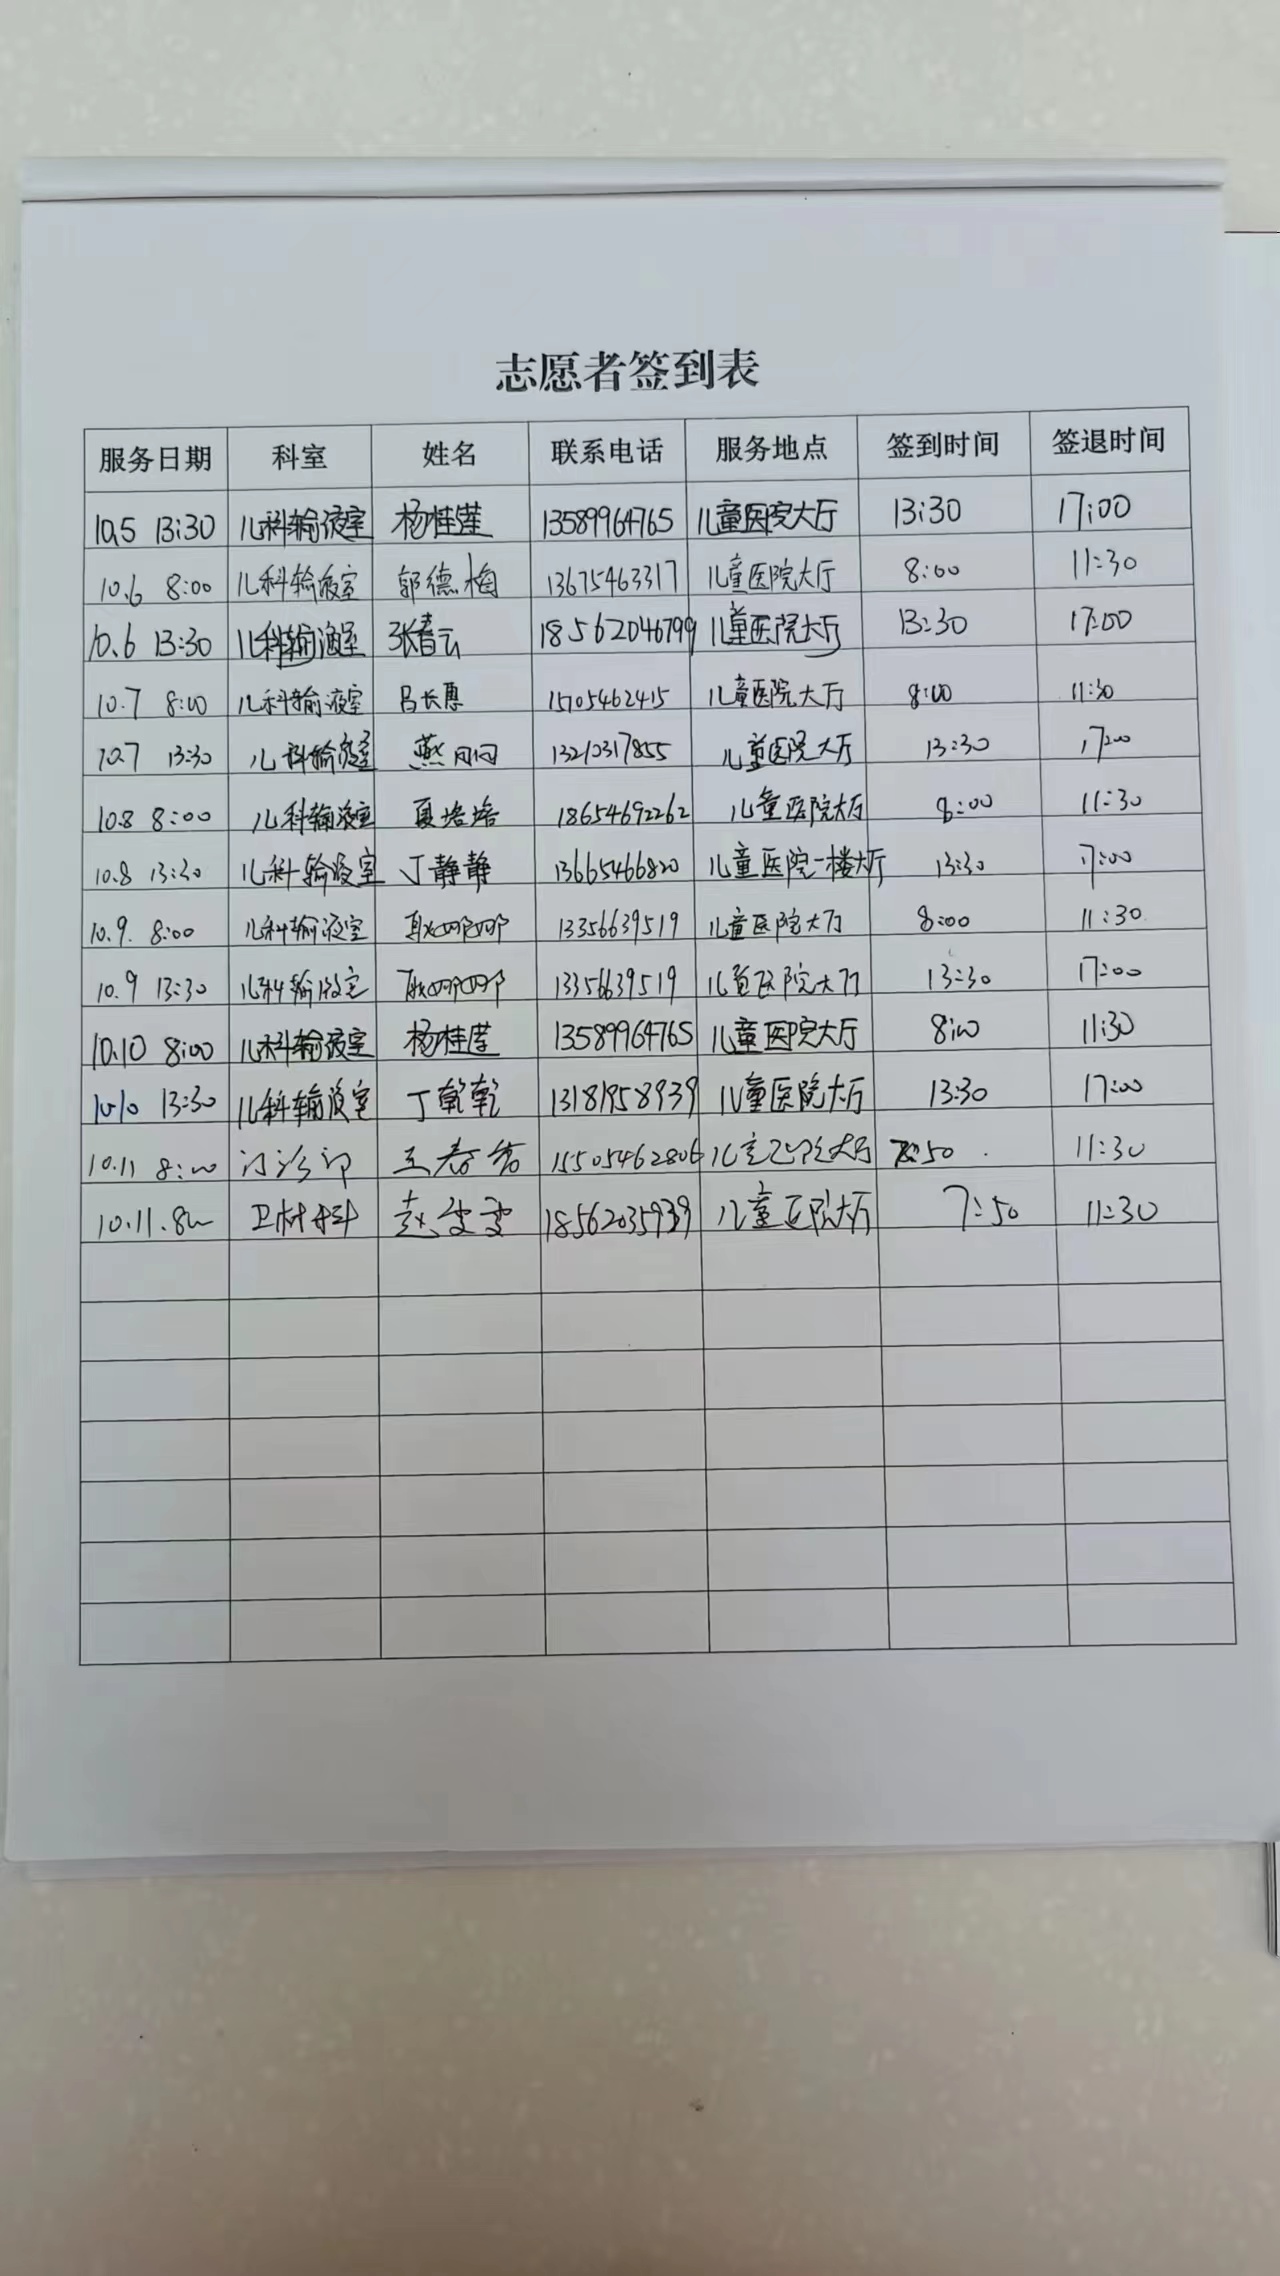 志愿者签到表
服务日期 科室 姓名 联系电话 服务地点 签到时间 签退时间
10.5 13:30 儿科输液室 杨桂莲 13589964765 儿童医院大厅 13:30 17:00
10.6 8:00 儿科输液室 郭德梅 13675463317 儿童医院大厅 8:00 11:30
10.6 13:30 儿科输液室 张春云 18562046799 儿童医院大厅 13:30 17:00
10.7 8:00 儿科输液室 吕长惠 15705462415 儿童医院大厅 8:00 11:30
10.7 13:30 儿科输液室 燕闪闪 13210317855 儿童医院大厅 13:30 17:00
10.8 8:00 儿科输液室 夏培培 18654692262 儿童医院大厅 8:00 11:30
10.8 13:30 儿科输液室 丁静静 13665466820 儿童医院一楼大厅 13:30 17:00
10.9. 8:00 儿科输液室 耿娜娜 13356639519 儿童医院大厅 8:00 11:30
10.9 13:30 儿科输液室 耿娜娜 13356639519 儿童医院大厅 13:30 17:00
10.10 8:00 儿科输液室 杨桂莲 13589964765 儿童医院大厅 8:00 11:30
10.10 13:30 儿科输液室 丁乾乾 13181958939 儿童医院大厅 13:30 17:00
10.11 8:00 门诊部 王春 15505462806 儿童医院大厅 7:50 11:30
10.11.8:00 卫材科 赵雯雯 18562035939 儿童医院大厅 7:50 11:30